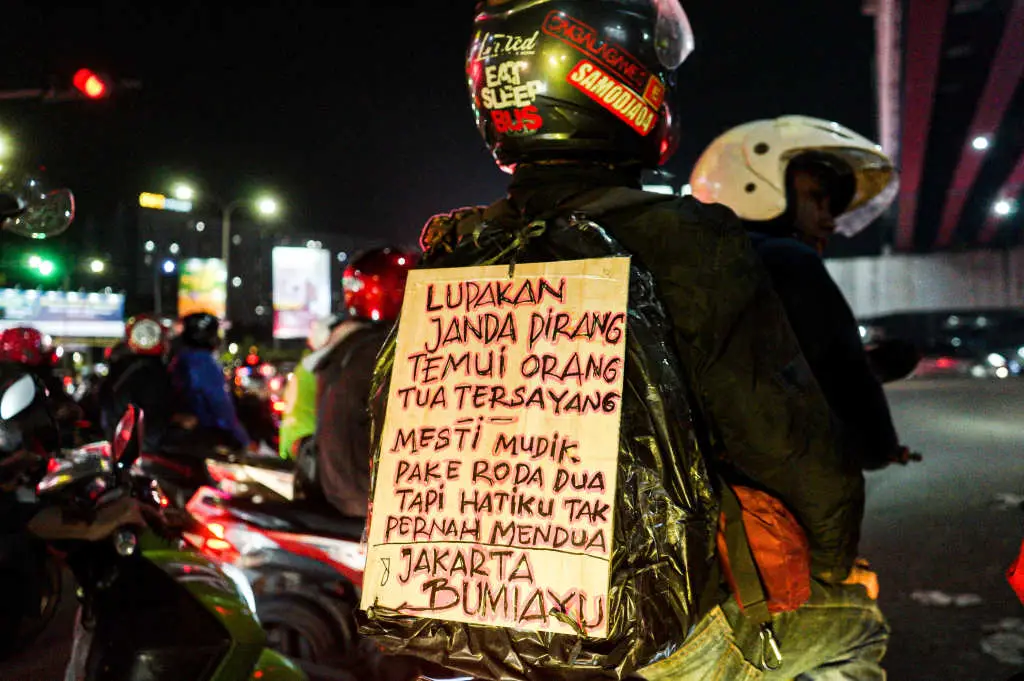 Limited
EAT
SLEEP
BUS
SAMODJAOA
LUPAKAN
JANDA DIRANG
TEMUI ORANG
TUA TERSAYANG
MESTI MUDIK
PAKE RODA DUA
TAPI HATIKU TAK
PERNAH MENDUA
JAKARTA
BUMIAYU